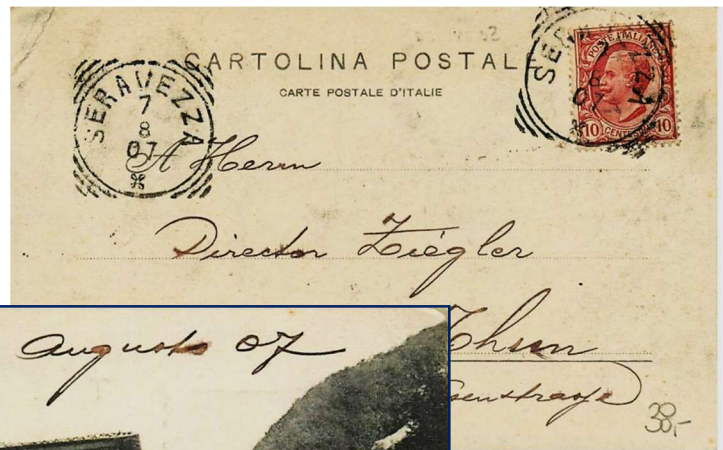 CARTOLINA POSTAL
CARTE POSTALE D'ITALIE
SERAVEZZA
7
8
07
POSTE ITALIANE
10 CENTESIMI 10
A Herrn
Director Ziegler
Thun
augusto 07
38,-